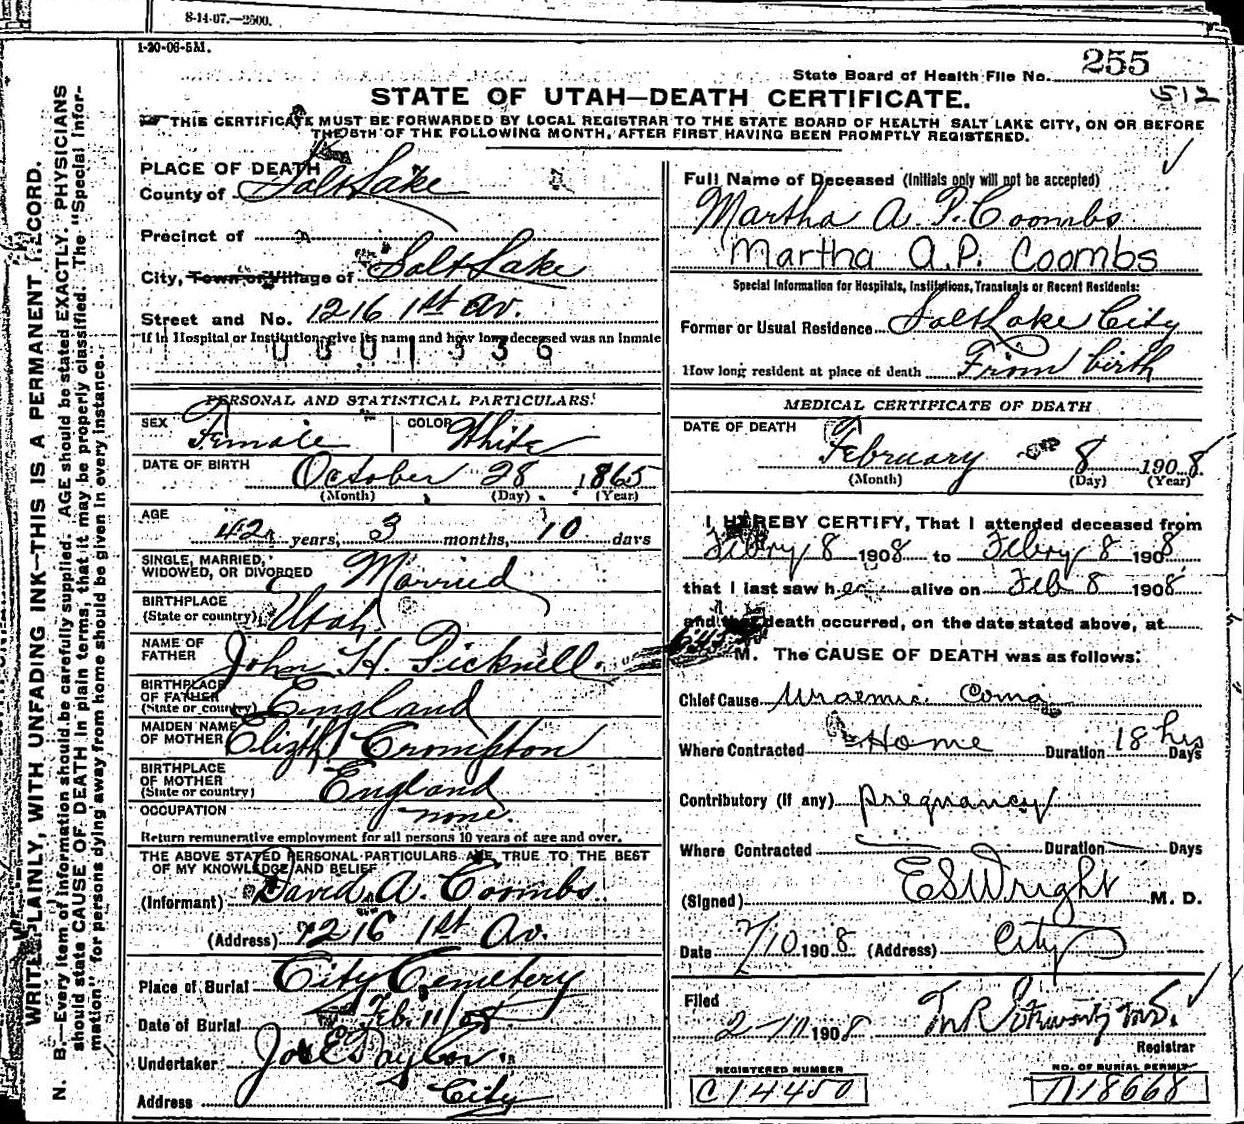 8-14-07.—2500.
1-20-06-5M.
State Board of Health File No. 255
512
STATE OF UTAH—DEATH CERTIFICATE.
THIS CERTIFICATE MUST BE FORWARDED BY LOCAL REGISTRAR TO THE STATE BOARD OF HEALTH SALT LAKE CITY, ON OR BEFORE
THE 5TH OF THE FOLLOWING MONTH, AFTER FIRST HAVING BEEN PROMPTLY REGISTERED.
WRITE PLAINLY, WITH UNFADING INK—THIS IS A PERMANENT RECORD.
N. B.—Every item of information should be carefully supplied. AGE should be stated EXACTLY. PHYSICIANS
should state CAUSE OF DEATH in plain terms, that it may be properly classified. The "Special Infor-
mation" for persons dying away from home should be given in every instance.
PLACE OF DEATH
County of Salt Lake
Precinct of
City, Town or Village of Salt Lake
Street and No. 1216 1st Av.
If in Hospital or Institution, give its name and how long deceased was an inmate
0001336
PERSONAL AND STATISTICAL PARTICULARS.
SEX Female COLOR White
DATE OF BIRTH October 28 1865
(Month) (Day) (Year)
AGE 42 years, 3 months, 10 days
SINGLE, MARRIED,
WIDOWED, OR DIVORCED Married
BIRTHPLACE
(State or country) Utah
NAME OF
FATHER John H. Picknell.
BIRTHPLACE
OF FATHER
(State or country) England
MAIDEN NAME
OF MOTHER Elizth Crompton
BIRTHPLACE
OF MOTHER
(State or country) England
OCCUPATION none.
Return remunerative employment for all persons 10 years of age and over.
THE ABOVE STATED PERSONAL PARTICULARS ARE TRUE TO THE BEST
OF MY KNOWLEDGE AND BELIEF
(Informant) David A. Coombs.
(Address) 1216 1st Av.
Place of Burial City Cemetery
Date of Burial Feb. 11/08
Undertaker Jos E Taylor
Address City
Full Name of Deceased (Initials only will not be accepted)
Martha A. P. Coombs
Martha A.P. Coombs
Special Information for Hospitals, Institutions, Transients or Recent Residents:
Former or Usual Residence Salt Lake City
How long resident at place of death From birth
MEDICAL CERTIFICATE OF DEATH
DATE OF DEATH
February 8 1908.
(Month) (Day) (Year)
I HEREBY CERTIFY, That I attended deceased from
Febry 8 1908 to Febry 8 1908
that I last saw her alive on Feb 8 1908
and that death occurred, on the date stated above, at
M. The CAUSE OF DEATH was as follows:
Chief Cause Uraemic Coma
Where Contracted Home Duration 18 hrs Days
Contributory (if any) pregnancy
Where Contracted Duration Days
(Signed) E S Wright M. D.
Date 2/10 1908 (Address) City
Filed
2-10 1908
Registrar
REGISTERED NUMBER
C14450
NO. OF BURIAL PERMIT